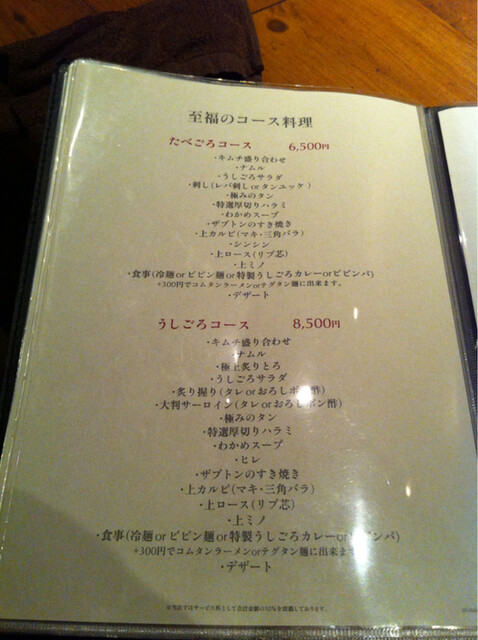 至福のコース料理
たべごろコース 6,500円
・キムチ盛り合わせ
・ナムル
・うしごろサラダ
・刺し(レバ刺しorタンユッケ)
・極みのタン
・特選厚切りハラミ
・わかめスープ
・ザブトンのすき焼き
・上カルビ(マキ・三角バラ)
・シンシン
・上ロース(リブ芯)
・上ミノ
・食事(冷麺orビビン麺or特製うしごろカレーorビビンバ)
+300円でコムタンラーメンorテグタン麺に出来ます。
・デザート
うしごろコース 8,500円
・キムチ盛り合わせ
・ナムル
・極上炙りとろ
・うしごろサラダ
・炙り握り(タレorおろしポン酢)
・大判サーロイン(タレorおろしポン酢)
・極みのタン
・特選厚切りハラミ
・わかめスープ
・ヒレ
・ザブトンのすき焼き
・上カルビ(マキ・三角バラ)
・上ロース(リブ芯)
・上ミノ
・食事(冷麺orビビン麺or特製うしごろカレーorビビンバ)
+300円でコムタンラーメンorテグタン麺に出来ます
・デザート
※当店ではサービス料として合計金額の10%を頂戴しております。